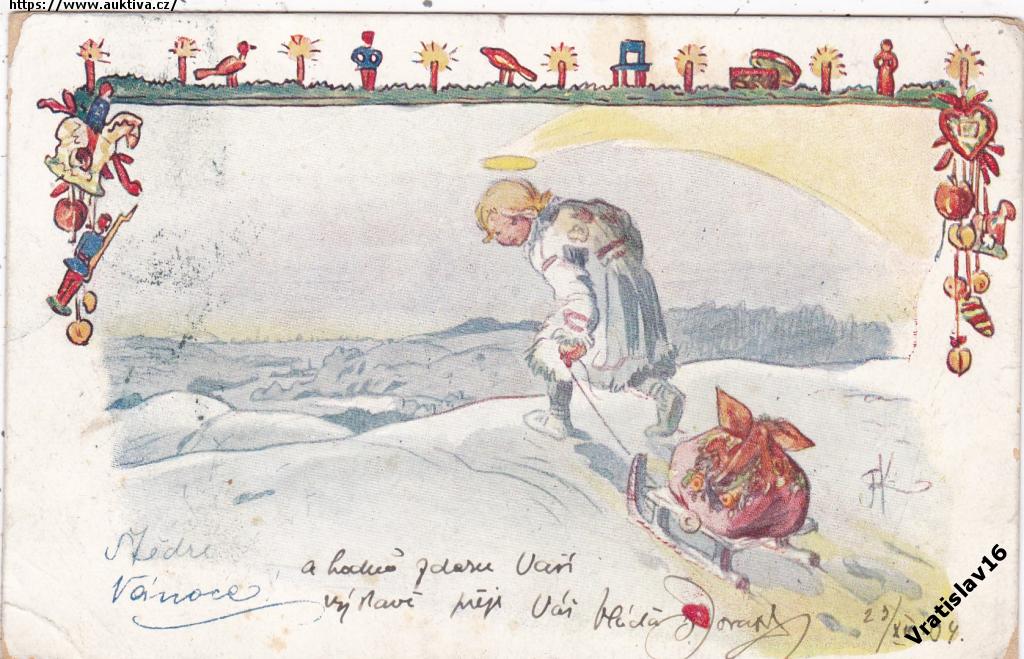 https://www.auktiva.cz/
Štědré
Vánoce!
a hodně zdaru Vaší
výstavě přeje Váš Vláďa
23/XII 04.
Vratislav16